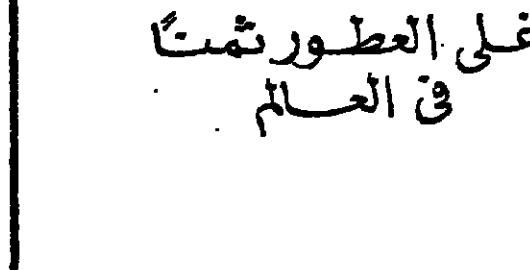 غلى العطور ثمنًا
في العالم